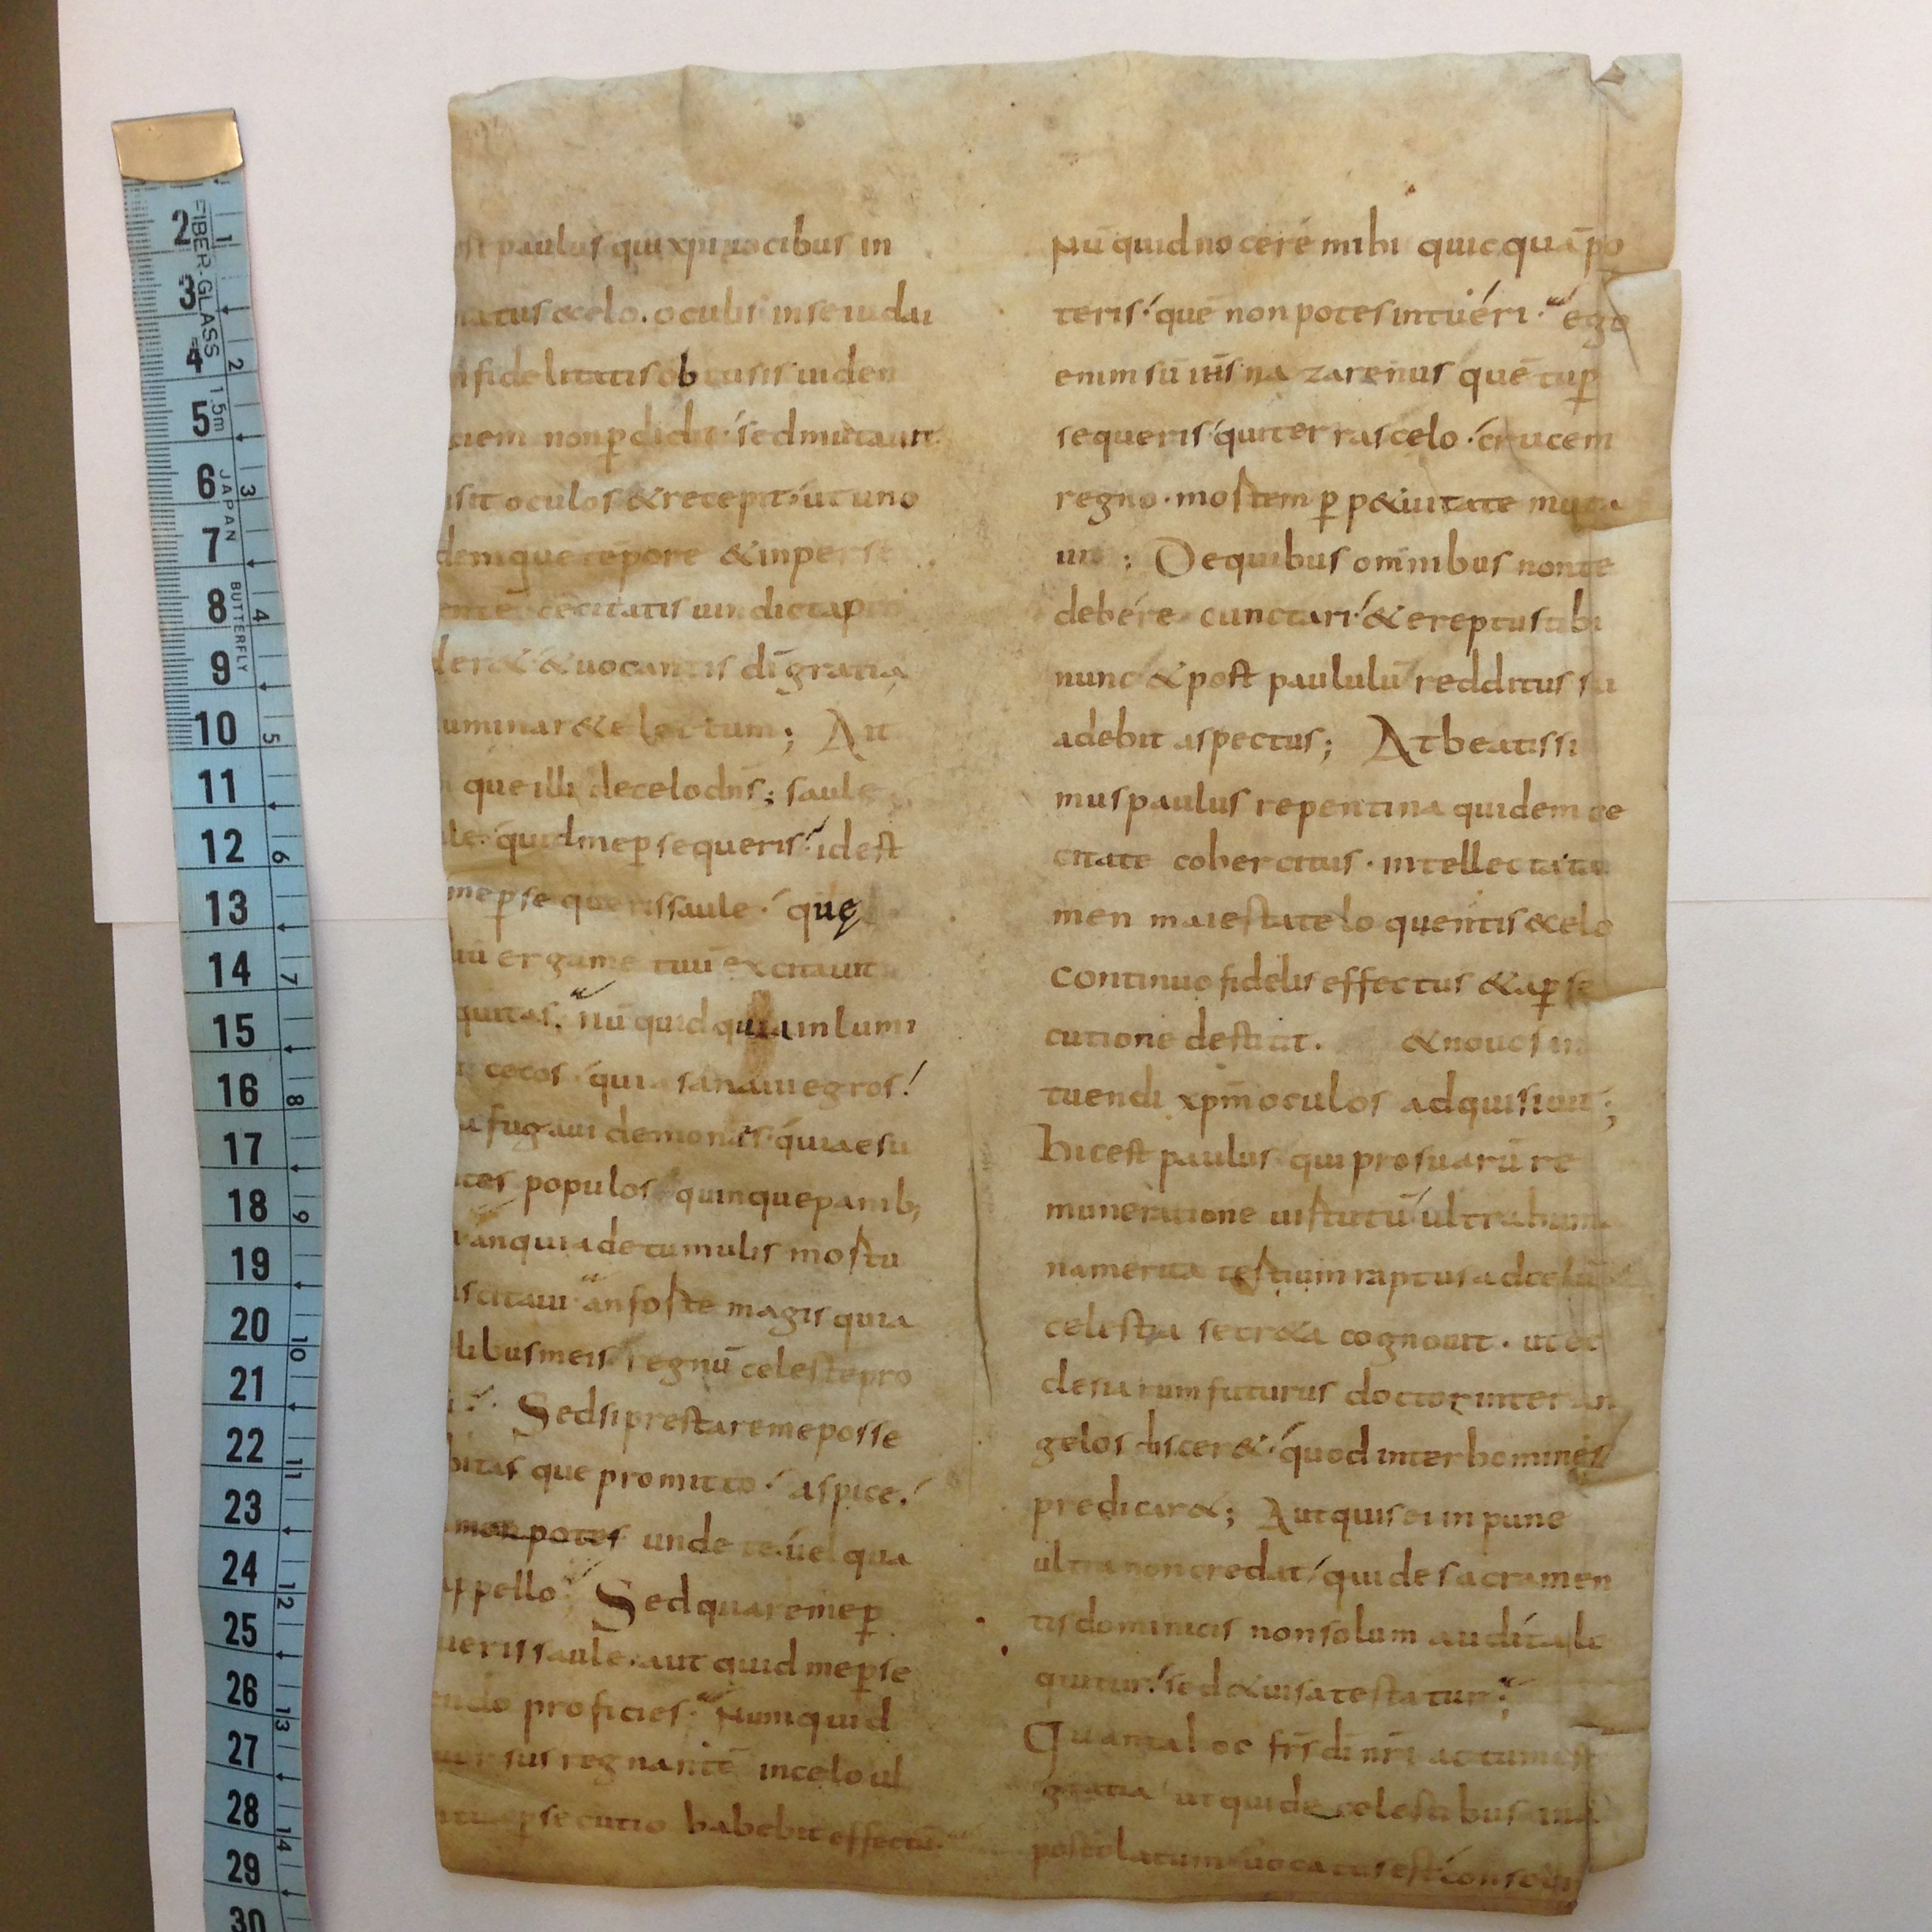 paulus qui xpi uocibus in
natus ęcelo. oculis inse iudai
nfidelitatis obtusis uiden
ciem non pdidit sed mutauit
sit oculos & recepit ut uno
demque tēpore & inperse
ente cecitatis uindicta pro
der& & uocantis dī gratia
luminar& electum; Ait
que illi decelo dns; saule
le quid me psequeris idest
me psequeris saule quę
tuū erga me tuū excitauit
quitas. nū quid quia in lumi
cecos quia sanaui egros
a fugaui demones quia esu
tes populos quinque panib;
an quia de tumulis mortu
scitaui an forte magis quia
libus meis regnū celeste pro
Sed si prestare me posse
bitas que promitto aspice
non potes unde te uel qua
appello Sed quare me p
ueris saule aut quid me pse
endo proficies Numquid
uersus regnantē in celo ul
tua psecutio habebit effectū
Nū quid nocere mihi quicquā po
teris quē non potes intuéri ego
enim sū ihs nazarenus quē tu p
sequeris qui terras celo crucem
regno mortem ppetuitate muta
ui; De quibus omnibus non te
debére cunctari & ereptus tibi
nunc & post paululū redditus su
adebit aspectus; At beatissi
mus paulus repentina quidem ce
citate cohercitus intellecta ta
men maiestate loquentis ęcelo
continuo fidelis effectus & a pse
cutione destitit. & nouos in
tuendi xpm oculos adquisiuit;
hic est paulus qui pro suarū re
muneratione uirtutū ultra huma
na merita tertium raptus ad celū
celestia secr&a cognouit. ut ec
clesiarum futurus doctor inter an
gelos discer& quod inter homines
predicar&; Aut quis ei inpune
ultra non credat qui de sacramen
tis dominicis non solum audíta lo
quitur sed & uisa testatur;
Quanta hoc frs dī nrī actum est
gratia ut qui de celestibus ad a
postolatum uocatus est consequi